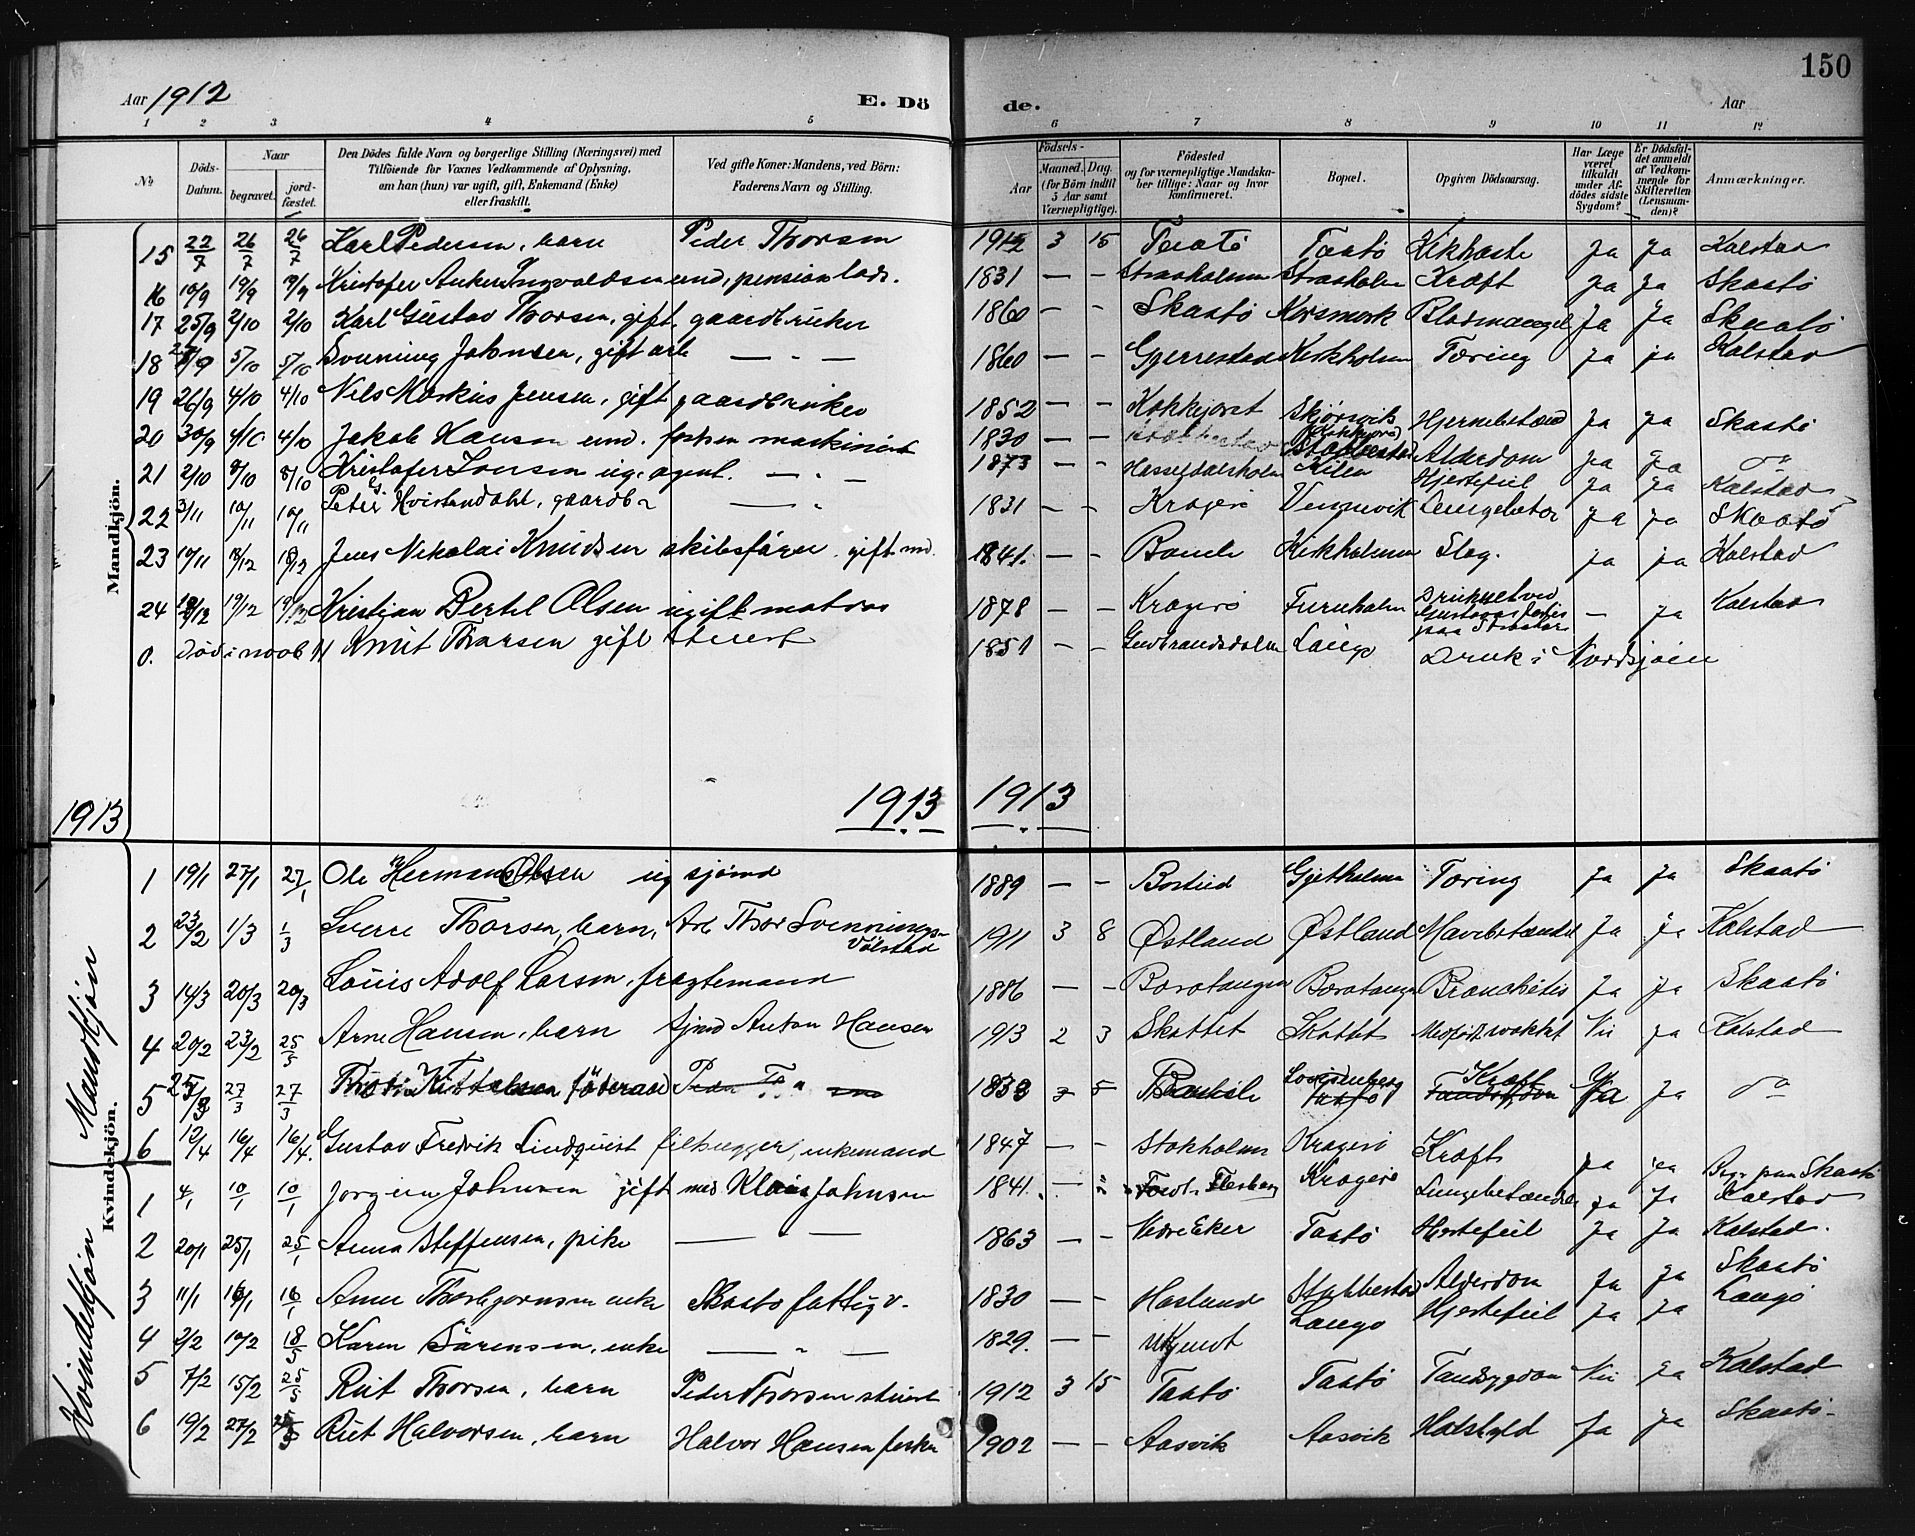 150
Aar 1912 E. Dö de. Aar
1 2 3 4 5 6 7 8 9 10 11 12
No. Döds-Datum. Naar begravet. jord-fæstet. Den Dödes fulde Navn og borgerlige Stilling (Næringsvei) med Tilföiende for Voxnes Vedkommende af Oplysning, om han (hun) var ugift, gift, Enkemand (Enke) eller fraskilt. Ved gifte Koner: Mandens, ved Börn: Faderens Navn og Stilling. Födsels- Aar Maaned. Dag. (for Börn indtil 5 Aar samt Værnepligtige). Födested og for værnepligtige Mandskaber tillige: Naar og hvor konfirmeret. Bopæl. Opgiven Dödsaarsag. Har Læge været tilkaldt under Afdödes sidste Sygdom? Er Dödsfaldet anmeldt af Vedkommende for Skifteretten (Lensmanden)? Anmærkninger.
Mandkjön.
15 22/7 26/7 26/7 Karl Pedersen, barn Peder Thorsen 1912 3 15 Taatö Taatö Kikhoste Ja Ja Kalstad
16 10/9 19/9 19/9 Kristofer Anker Ingvaldsen emd, pension lods. 1831 — - Straaholmen Straaholm Kræft Ja Ja Skaatö
17 25/9 2/10 2/10 Karl Gustav Thorsen, gift, gaardbruker 1860 — - Skaatö Korsmork Blodmangel Ja Ja Skaatö
18 5/10 5/10 Svenning Johnsen, gift arb — " — 1860 — - Gjerrestad Kirkholmen Tæring Ja ja Kalstad
19 26/9 4/10 4/10 Nils Markus Jensen, gift gaardbruker 1852 — - Kokkjorst Skörsvik Hjernebetænd Ja Ja Skaatö
20 30/9 4/10 4/10 Jakob Hansen emd. forhen maskinist 1830 — - Stabbestad Alderdom Ja Ja do
21 2/10 8/10 8/10 Kristofer Iversen ug. agent. — " — 1873 — - Hasseldalsholm Kilen Hjertefeil Ja Ja Kalstad
22 3/11 10/11 10/11 Peter Hvistendahl, gaardbr — " 1831 — - Kragerö Vennevik Lungebetæ Ja Ja Skaatö
23 10/11 18/12 18/12 Jens Nikolai Knudsen skibsförer. gift md. 1841. — - Bamle Kirkholmen Slag. ja ja Kalstad
24 19/12 19/12 Kristian Bertel Olsen ugift matros 1878 — - Kragerö Furuholm Druknet ved — Ja Kalstad
0. Död i novb 11 Knut Thorsen gift stuert 1851 — - Gudbrandsdalen Langö Druk i Nordsjöen
1913 1913 1913
Mandkjön
1 19/1 27/1 27/1 Ole Herman Olsen ug sjömd 1889 — - Borteid Gjetholmen Tæring Ja Ja Skaatö
2 23/2 1/3 1/3 Sverre Thorsen, barn, Arb Thor Svennings- Völstad 1911 3 8 Østland Østland Mavebetændel Ja ja Kalstad
3 14/3 20/3 20/3 Louis Adolf Larsen, fragtemand 1886 — - Barotangen Barotangen Bronchitis Ja ja Skaatö
4 20/2 23/2 25/5 Arne Hansen, barn Sjmd Anton Hansen 1913 2 3 Skottet Skottet Medfödt svakhet Nei ja Kalstad
5 27/3 27/3 Kittelsen föderaad 1833 3 5 Kræft Ja Ja do
6 12/4 16/4 16/4. Gustav Fredrik Lindquist filhugger, enkemand 1847 — - Stokholm Kragerö Kræft Ja ja Begr. paa Skaatö
Kvindekjön. Kvindekjön
1 4/1 10/1 10/1 Jorgine Johnsen gift med Klaus Johnsen 1841. — " Flesberg Kragerö Lungebetændel Ja Ja Kalstad
2 20/1 25/1 25/1 Anna Steffensen, pike — — 1863 — - Nedre Eker Taatö Hjertefeil Ja Ja Kalstad.
3 11/1 16/1 16/1 Anne Thorbjornsen enke Skaatö fattigv. 1830 — - Hasland Stabbestad Alderdom Ja Ja Skaatö
4 2/2 10/2 18/5 Karen Sörensen, enke — " — 1829. — - Ukjendt Langö Hjertefeil Ja Ja Langö
5 7/2 15/2 25/5 Rut Thorsen, barn Peder Thorsen stuert 1912 3 15 Taatö Taatö Tandsygdom Nei Ja Kalstad
6 19/2 27/2 Rut Halvorsen, barn Halvor Hansen fisker 1902 — - Aasvik Aasvik Halsbyld Ja Ja Skaatö-